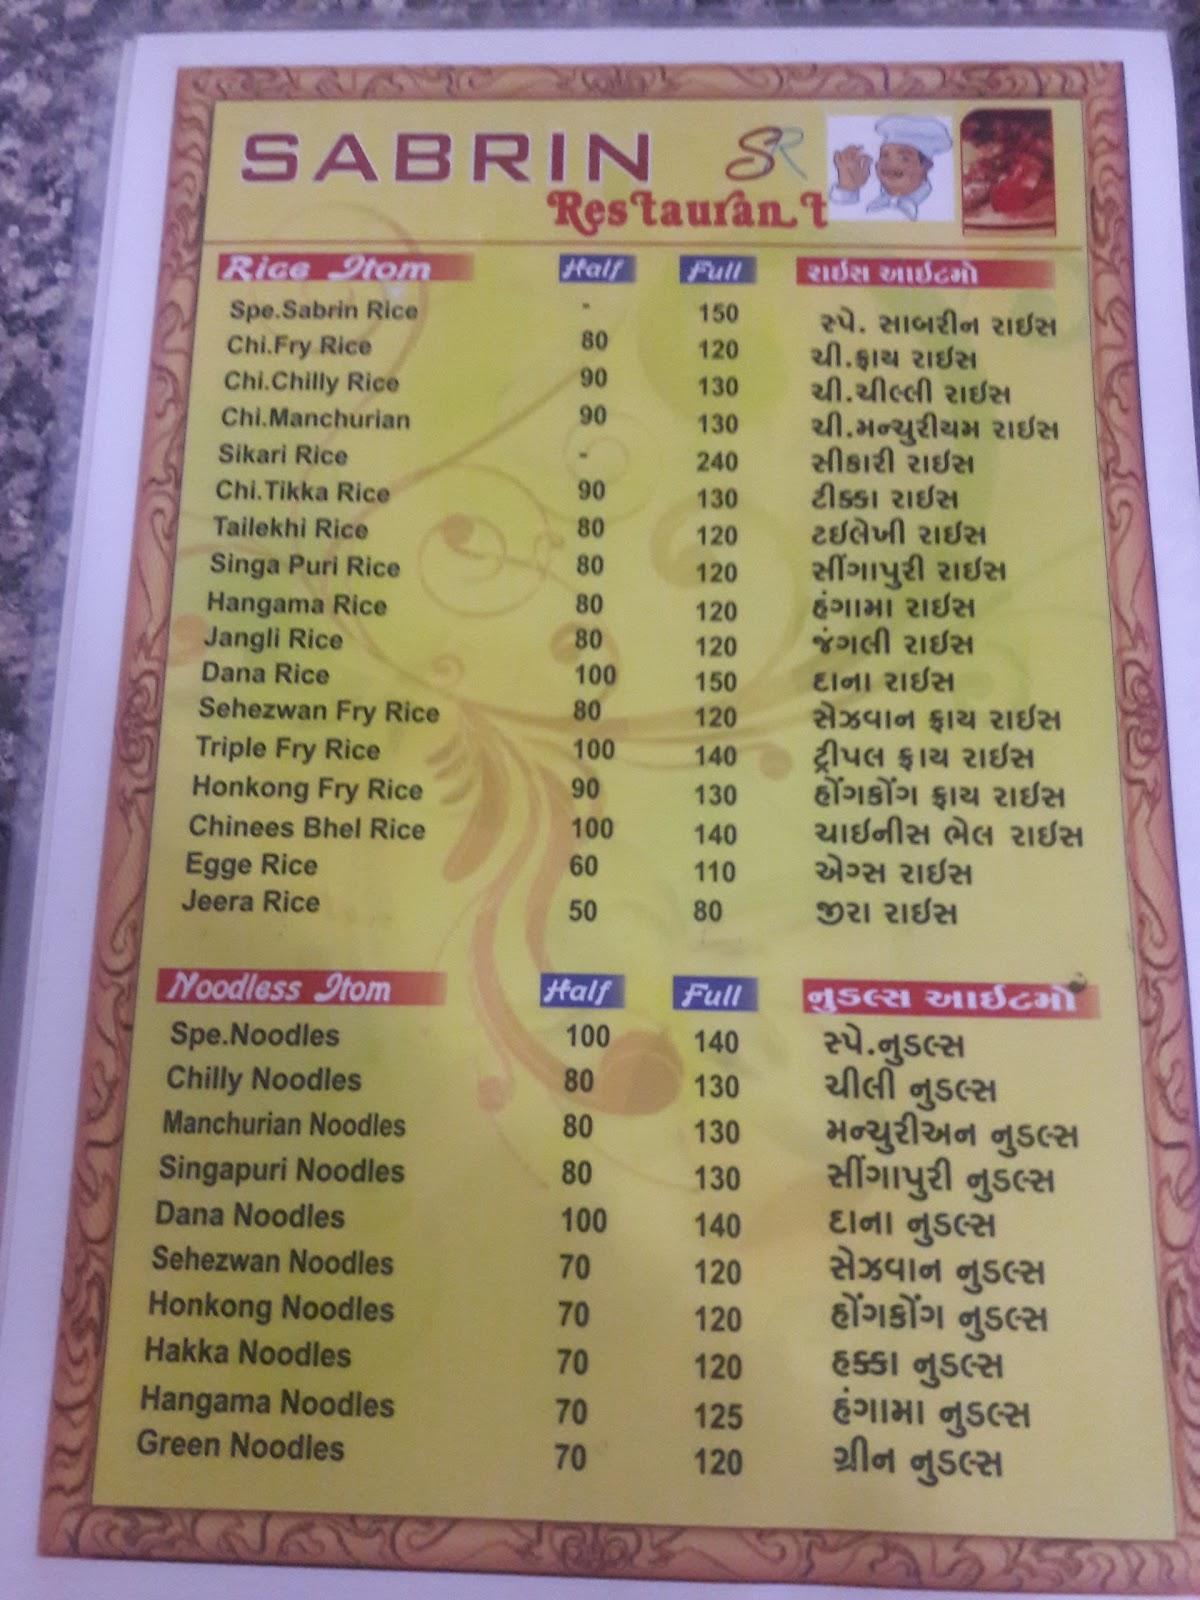 SABRIN SR
Restaurant
Rice Itom Half Full રાઈસ આઈટમો
Spe.Sabrin Rice - 150 સ્પે. સાબરીન રાઈસ
Chi.Fry Rice 80 120 ચી.ફ્રાય રાઈસ
Chi.Chilly Rice 90 130 ચી.ચીલ્લી રાઈસ
Chi.Manchurian 90 130 ચી.મન્ચુરીયમ રાઈસ
Sikari Rice - 240 સીકારી રાઈસ
Chi.Tikka Rice 90 130 ટીક્કા રાઈસ
Tailekhi Rice 80 120 ટઈલેખી રાઈસ
Singa Puri Rice 80 120 સીંગાપુરી રાઈસ
Hangama Rice 80 120 હંગામા રાઈસ
Jangli Rice 80 120 જંગલી રાઈસ
Dana Rice 100 150 દાના રાઈસ
Sehezwan Fry Rice 80 120 સેઝવાન ફ્રાય રાઈસ
Triple Fry Rice 100 140 ટ્રીપલ ફ્રાય રાઈસ
Honkong Fry Rice 90 130 હોંગકોંગ ફ્રાય રાઈસ
Chinees Bhel Rice 100 140 ચાઈનીસ ભેલ રાઈસ
Egge Rice 60 110 એગ્સ રાઈસ
Jeera Rice 50 80 જીરા રાઈસ
Noodless Itom Half Full નુડલ્સ આઈટમો
Spe.Noodles 100 140 સ્પે.નુડલ્સ
Chilly Noodles 80 130 ચીલી નુડલ્સ
Manchurian Noodles 80 130 મન્ચુરીઅન નુડલ્સ
Singapuri Noodles 80 130 સીંગાપુરી નુડલ્સ
Dana Noodles 100 140 દાના નુડલ્સ
Sehezwan Noodles 70 120 સેઝવાન નુડલ્સ
Honkong Noodles 70 120 હોંગકોંગ નુડલ્સ
Hakka Noodles 70 120 હક્કા નુડલ્સ
Hangama Noodles 70 125 હંગામા નુડલ્સ
Green Noodles 70 120 ગ્રીન નુડલ્સ